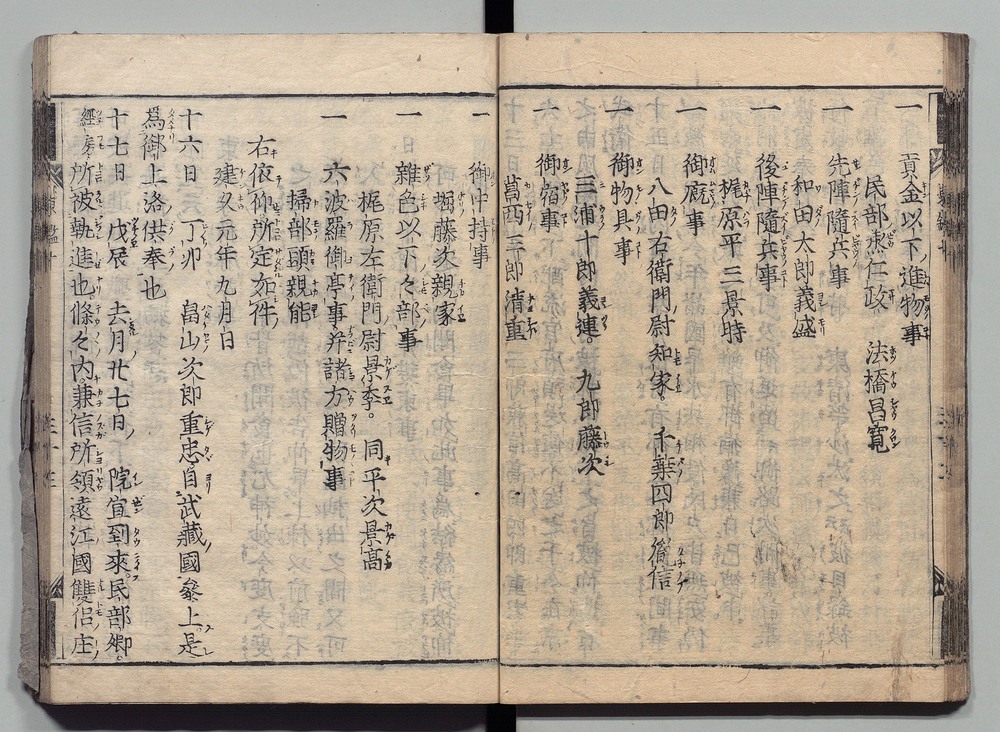 一 貢金以下進物事
民部丞仁政 法橋昌寛
一 先陣隨兵事
和田太郎義盛
一 後陣隨兵事
梶原平三景時
一 御厩事
八田右衛門尉知家。千葉四郎胤信
一 御物具事
三浦十郎義連。九郎藤次
一 御宿事
葛西三郎清重
一 御中持事
堀藤次親家
一 雜色以下々部事
梶原左衛門尉景季。同平次景高
一 六波羅御亭事并諸方贈物事
掃部頭親能
右依仰所定如件
建久元年九月日
十六日 丁卯 畠山次郎重忠自武藏國參上。是
爲御上洛供奉也
十七日 戊辰 去月廿七日。院宣到來。民部卿。
經房所被執進也。條々内。兼信所領遠江國雙侶庄